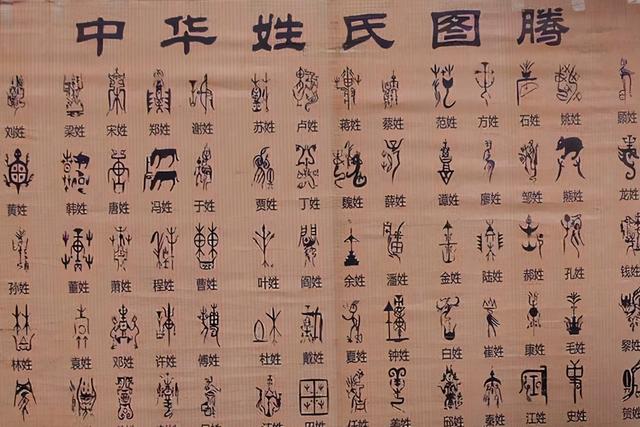 中华姓氏图腾
刘姓 梁姓 宋姓 郑姓 谢姓 苏姓 卢姓 蒋姓 蔡姓 范姓 方姓 石姓 姚姓 顾姓
黄姓 韩姓 唐姓 冯姓 于姓 贾姓 丁姓 魏姓 薛姓 谭姓 廖姓 邹姓 熊姓 龙姓
孙姓 董姓 萧姓 程姓 曹姓 叶姓 阎姓 余姓 潘姓 金姓 陆姓 郝姓 孔姓 钱姓
林姓 袁姓 邓姓 许姓 傅姓 杜姓 戴姓 夏姓 钟姓 白姓 崔姓 康姓 毛姓 黎姓
邱姓 秦姓 江姓 史姓 贺姓